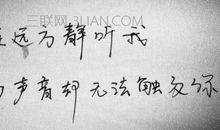 三联网 3LIAN.COM
在远方静听我
的声音却无法触及你